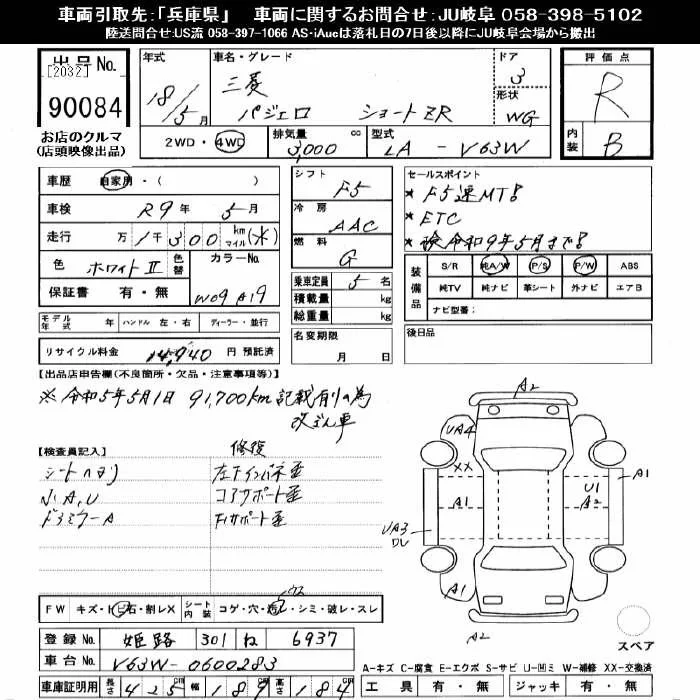 車両引取先:「兵庫県」 車両に関するお問合せ:JU岐阜 058-398-5102
陸送問合せ:US流 058-397-1066 AS・iAucは落札日の7日後以降にJU岐阜会場から搬出
出品No.
[2032]
90084
お店のクルマ
(店頭映像出品)
年式 18/5月
車名・グレード
三菱
パジェロ ショートZR
ドア 3
形状 WG
2WD・4WD
排気量 3,000 cc
型式 LA - V63W
評価点 R
内装 B
車歴 自家用・( )
車検 R9年 5月
走行 万1千300km マイル(*)
色 ホワイトII 色替
カラーNo. W09 A19
保証書 有・無
モデル年式 年 ハンドル 左・右 ディーラー・並行
リサイクル料金 14,940 円 預託済
シフト F5
冷房 AAC
燃料 G
乗車定員 5名
積載量 kg
総重量 kg
名変期限 月 日
セールスポイント
* F5速MT!
* ETC
* 検令和9年5月まで!
装備品 S/R 純A/W P/S P/W ABS
純TV 純ナビ 革シート 外ナビ エアB
ナビ型番:
後日品
【出品店申告欄(不良箇所・欠品・注意事項等)】
※令和5年5月1日 91,700km 記載有りの為
改ざん車
【検査員記入】
シートヘタリ
小A,U
ドアミラーA
修復
左インパネ歪
コアサポート歪
Frサポート歪
A2
UA4
XX
A1
UA3
DU
A1
U1
A2
A1
A2
スペア
FW キズ・トビ石・割レX シート内装 コゲ・穴・汚レ・シミ・破レ・スレ
登録No. 姫路 301 ね 6937
車台No. V63W-0600283
車庫証明用 長さ 425cm 幅 189cm 高さ 184cm
A-キズ C-腐食 E-エクボ S-サビ U-凹ミ W-補修 XX-交換済
工具 有・無 ジャッキ 有・無